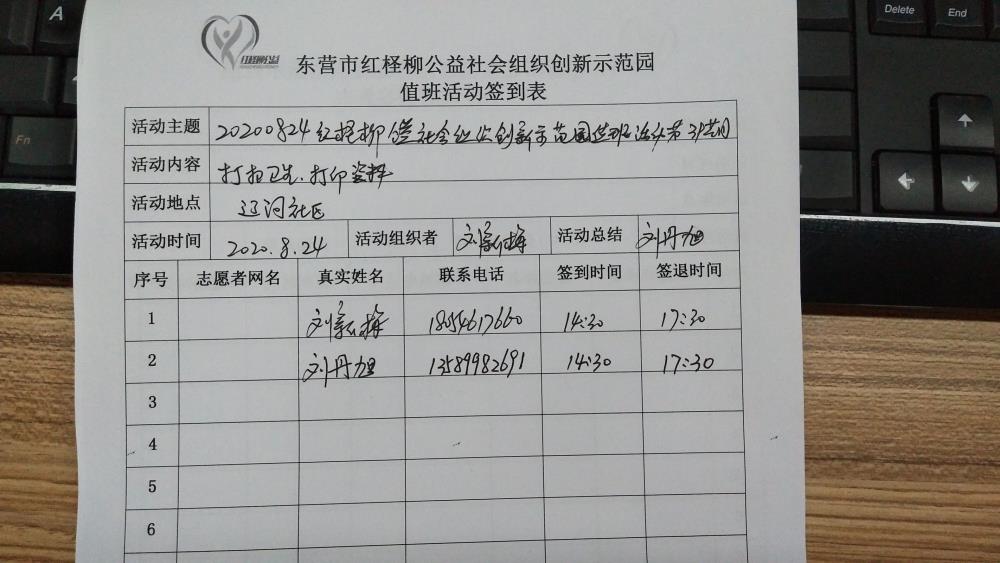 A
Delete
End
Fn
红柽柳公益
东营市红柽柳公益社会组织创新示范园
值班活动签到表
活动主题 20200824红柽柳公益社会组织创新示范园值班活动第 期
活动内容 打扫卫生、打印资料
活动地点 辽河社区
活动时间 2020.8.24 活动组织者 刘 梅 活动总结 刘丹旭
序号 志愿者网名 真实姓名 联系电话 签到时间 签退时间
1 刘 梅 18054617660 14:30 17:30
2 刘丹旭 13589982691 14:30 17:30
3
4
5
6